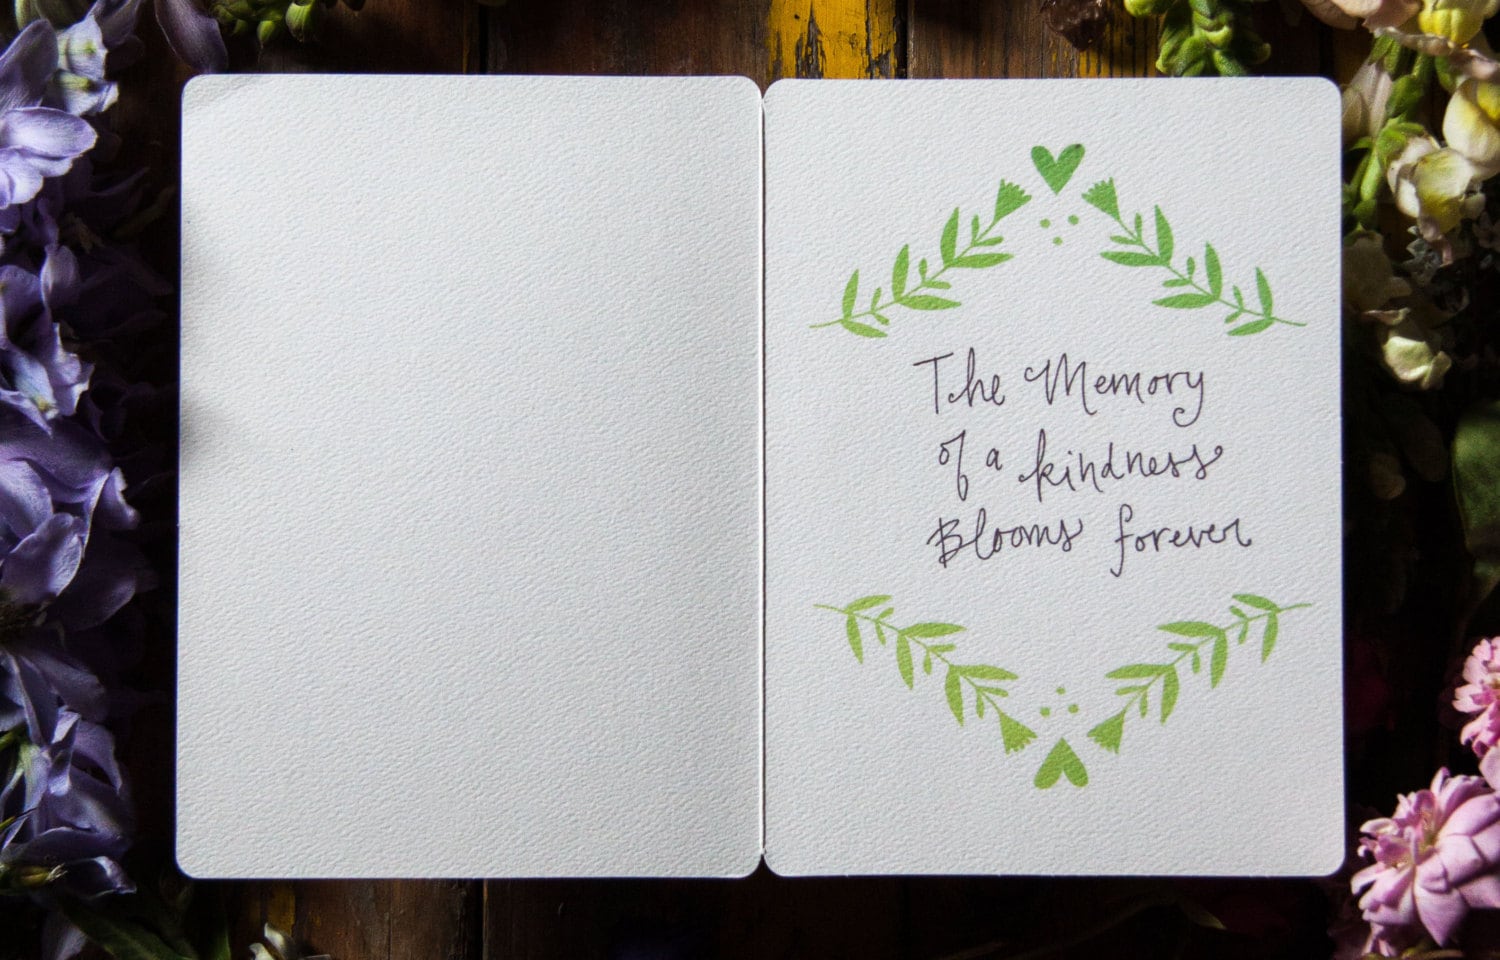 The Memory
of a kindness
Blooms forever